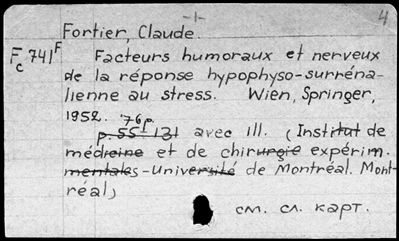 4
Fortier, Claude.
Fc 741F
Facteurs humoraux et nerveux
de la réponse hypophyso-surréna-
lienne au stress. Wien, Springer,
1952. 76p.
p. 55-131 avec ill. (Institut de
médecine et de chirurgie expérim.
mentales - Université de Montréal. Mont-
réal)
см. сл. карт.